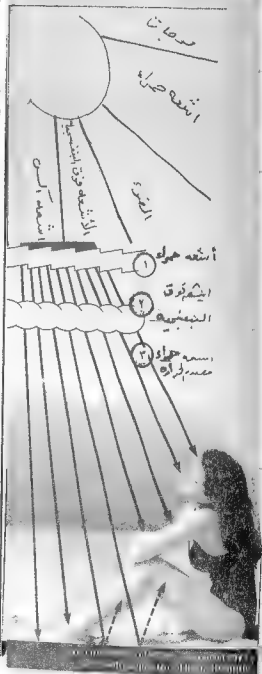 موجاتنا
أشعه حمراء
الضوء
الأشعه فوق البنفسجيه
اشعه اكس
أشعه حمراء
١
ايشع فوق
٢
البنفسجيه
اسعه حمراء
٣
مصدر الحراره